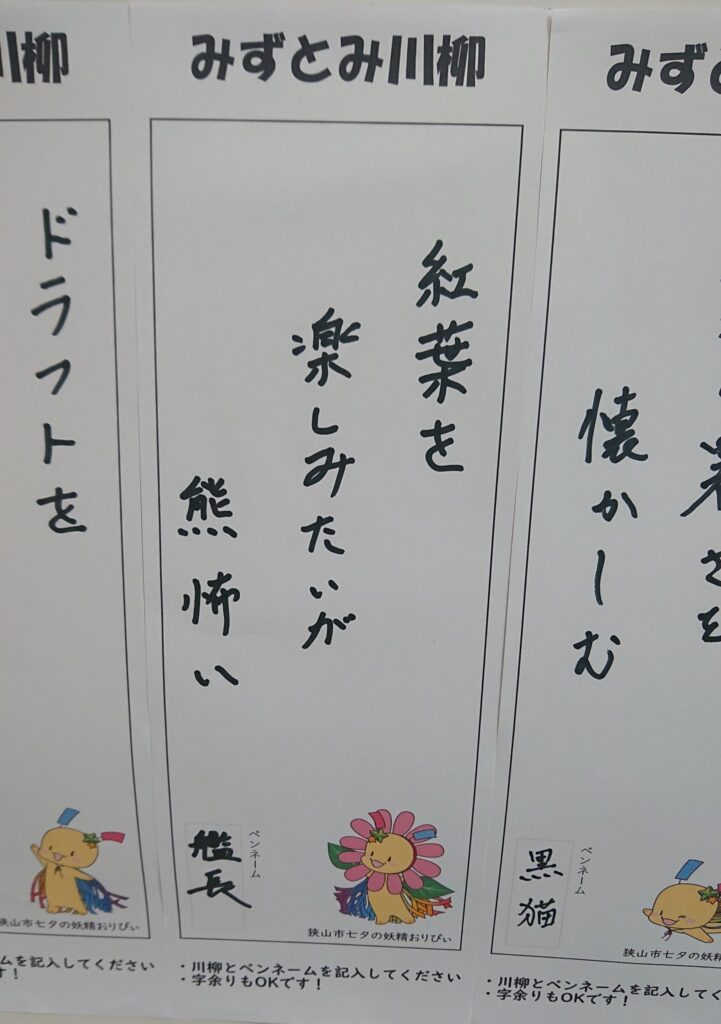 みずとみ川柳
懐かしむ
ペンネーム
黒猫
・川柳とペンネームを記入してく
・字余りもOKです！
みずとみ川柳
紅葉を
楽しみたいが
熊怖い
ペンネーム
艦長
狭山市七夕の妖精おりぴぃ
・川柳とペンネームを記入してください
・字余りもOKです！
川柳
ドラフトを
狭山市七夕の妖精おりぴぃ
ムを記入してください
す！